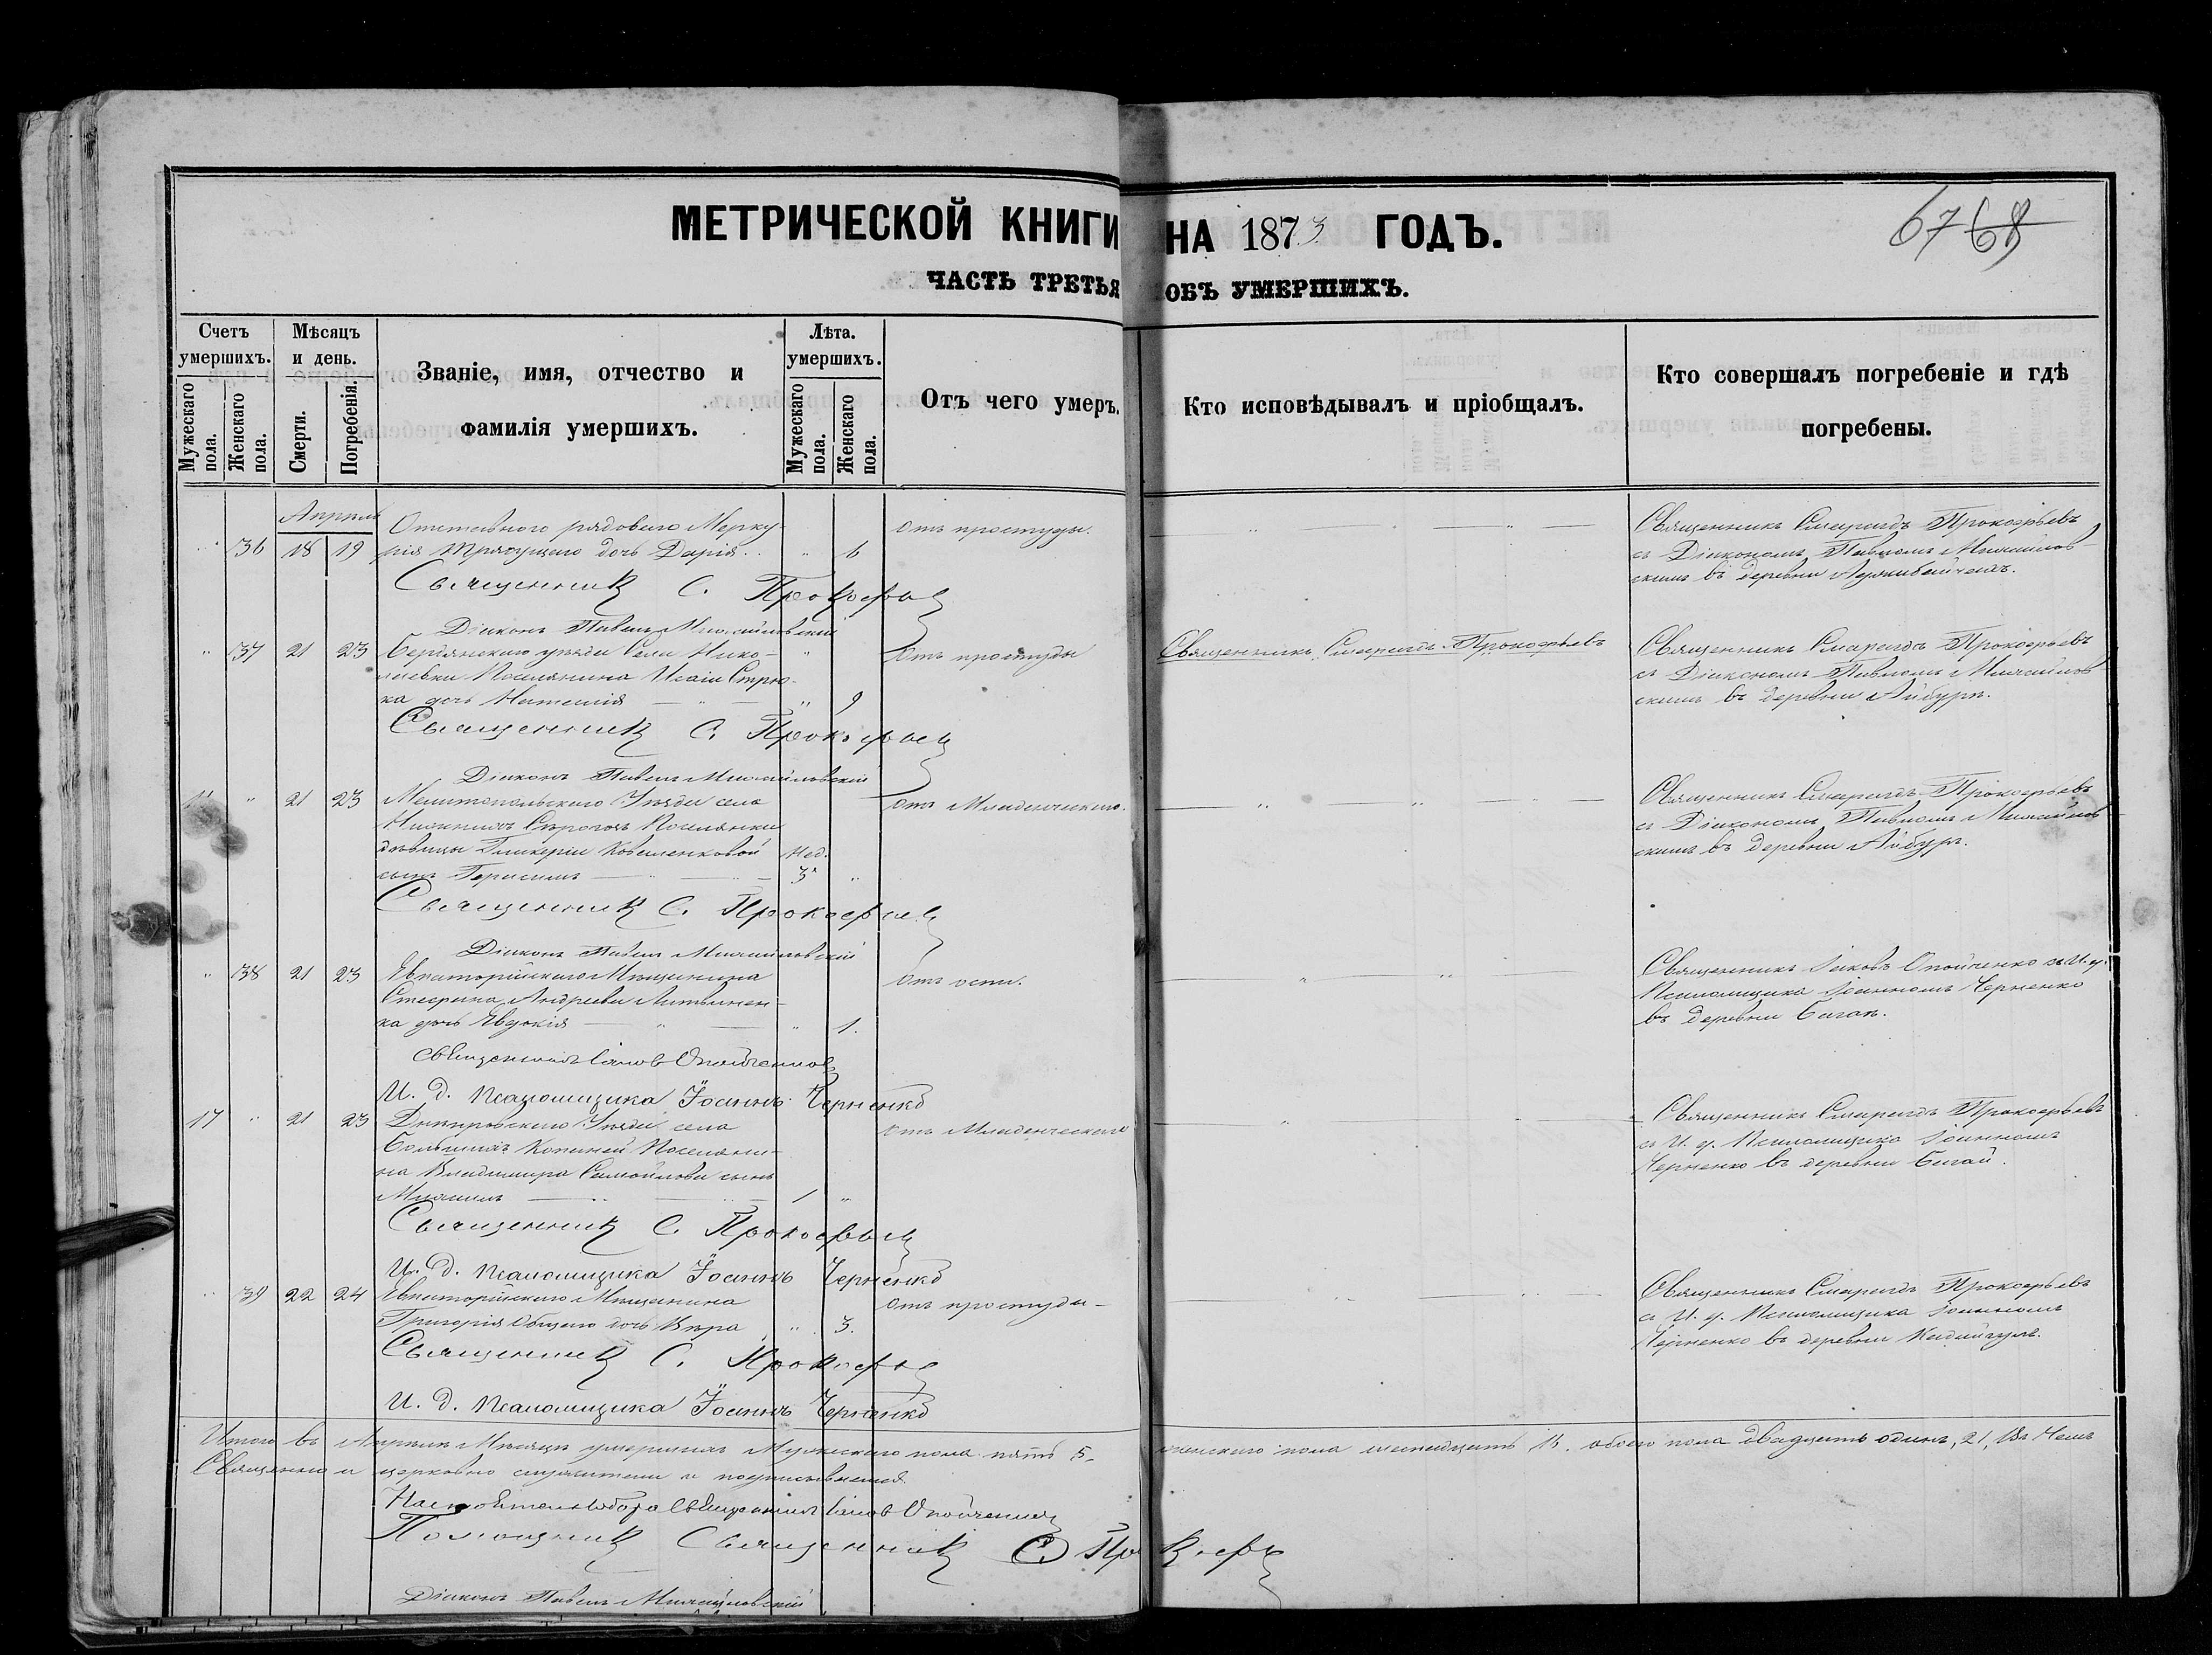 МЕТРИЧЕСКОЙ КНИГИ НА 1873 ГОДЪ.
6768
ЧАСТЬ ТРЕТЬЯ ОБЪ УМЕРШИХЪ.
Счетъ умершихъ.
Мужескаго пола.
Женскаго пола.
Мѣсяцъ и день.
Смерти.
Погребенія.
Званіе, имя, отчество и
фамилія умершихъ.
Лѣта. умершихъ.
Мужескаго пола.
Женскаго пола.
Отъ чего умеръ.
Кто исповѣдывалъ и пріобщалъ.
Кто совершалъ погребеніе и гдѣ
погребены.
Апрѣль
Отставного рядового Мерку-
Отъ простуды.
Священникъ Смарагдъ Прокофьевъ
36 18 19 рія дочь Дарія 6
съ Діакономъ Павломъ Михайлов-
скимъ въ деревни
Священникъ С. Прокофьевъ
Діаконъ Павелъ Михайловскій
37 21 23 Бердянскаго уѣзда Села Нико-
Отъ простуды
Священникъ Смарагдъ Прокофьевъ
Священникъ Смарагдъ Прокофьевъ
лаевки Поселянина Исаіи
съ Діакономъ Павломъ Михайлов
ка дочь 9
скимъ въ деревни Айбуръ.
Священникъ С. Прокофьевъ
Діаконъ Павелъ Михайловскій
21 23 Мелитопольскаго Уѣзда села
отъ Младенческаго.
Священникъ Смарагдъ Прокофьевъ
Нижнихъ Сѣрогозъ Поселянки
съ Діакономъ Павломъ Михайлов
дѣвицы Гликеріи Ковеленковой Нед.
скимъ въ деревни Айбуръ.
сынъ Герасимъ 3
Священникъ С. Прокофьевъ
Діаконъ Павелъ Михайловскій
38 21 23 Евпаторійскаго Мѣщанина
Отъ оспы.
Священникъ Іаковъ Опойченко съ И. д.
Стефана Андреева Литвинен-
Псаломщика Іоанномъ Черненко
ка дочь Евдокія 1.
въ деревни
Священникъ Іаковъ Опойченко
И. д. Псаломщика Іоаннъ Черненко
17 21 23 Днѣпровскаго Уѣзда села
отъ Младенческаго
Священникъ Смарагдъ Прокофьевъ
Большихъ Копаней Поселяни-
съ И. д. Псаломщика Іоанномъ
на Владимира Самойлова сынъ
Черненко въ деревни Бигай.
1
Священникъ С. Прокофьевъ
И. д. Псаломщика Іоаннъ Черненко
39 22 24 Евпаторійскаго Мѣщанина
отъ простуды
Священникъ Смарагдъ Прокофьевъ
Григорія дочь Вѣра 3.
съ И. д. Псаломщика Іоанномъ
Черненко въ деревни
Священникъ С. Прокофьевъ
И. д. Псаломщика Іоаннъ Черненко
Итого въ Апрѣлѣ Мѣсяцѣ умершихъ Мужескаго пола пять 5, женскаго пола шестнадцать 16. обоего пола двадцать одинъ, 21, Въ чемъ
Священно и церковно служители и подписываемся.
Настоятель Собора Священникъ Іаковъ Опойченко
Помощникъ Священникъ С. Прокофьевъ
Діаконъ Павелъ Михайловскій